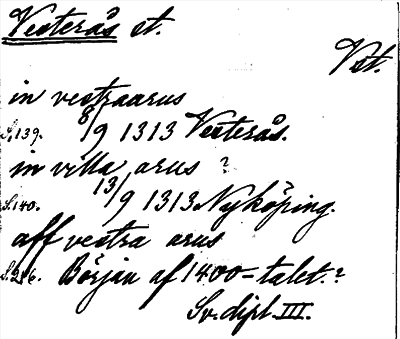 Vesterås st.
Vst.
in vestraarus
S. 139. 8/9 1313 Vesterås.
in villa arus ?
S. 140. 13/9 1313 Nyköping.
aff vestra arus
Början af 1400-talet.?
Sv. dipl. III.